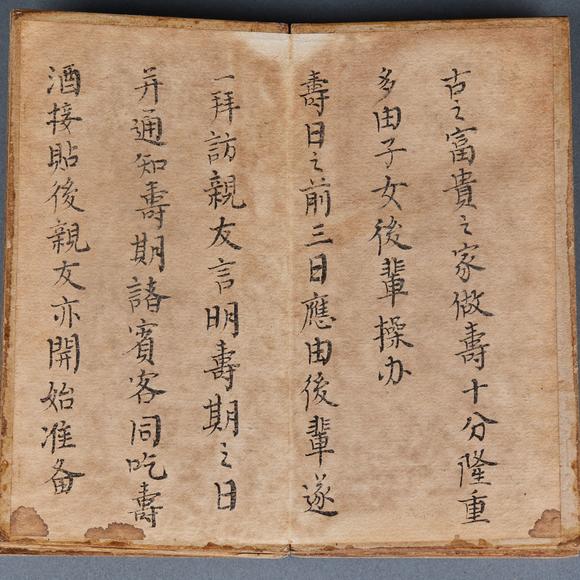 古之富貴之家做壽十分隆重
多由子女後輩操办
壽日之前三日應由後輩遂
一拜訪親友言明壽期之日
并通知壽期諸賓客同吃壽
酒接貼後親友亦開始准备